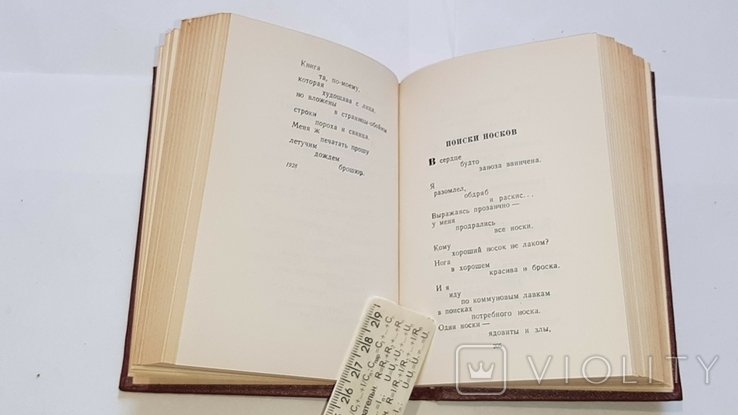 Книга
та, по-моему,
которая
худощава с лица,
но вложены
в страницы-обоймы
строки
пороха и свинца.
Меня ж
печатать прошу
летучим
дождем
брошюр.
1928
ПОИСКИ НОСКОВ
В сердце
будто
заноза ввинчена.
Я
разомлел,
обдряб
и раскис...
Выражаясь прозаично —
у меня
продрались
все носки.
Кому
хороший носок не лаком?
Нога
в хорошем
красива и броска.
И я
иду
по коммуновым лавкам
в поисках
потребного носка.
Одни носки —
ядовиты и злы,
VIOLITY
29
28
27
26